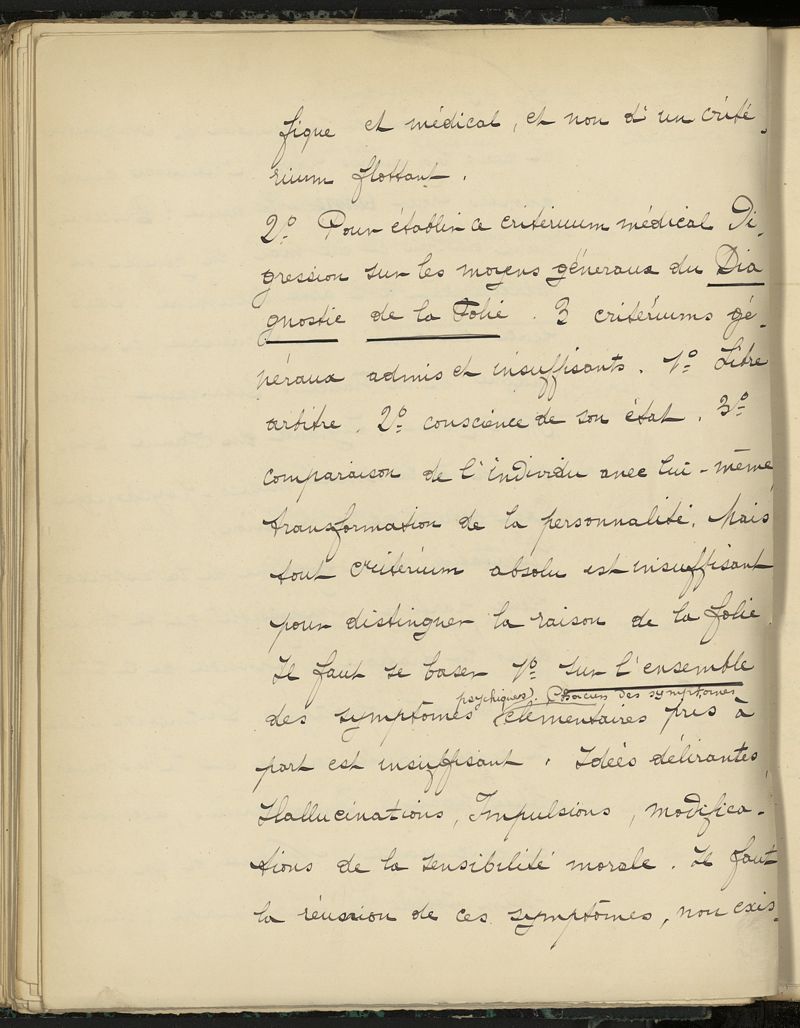 fique et médical, et non d'un crité-
rium flottant.
2º Pour établir ce critérium médical Di-
gression sur les moyens généraux du Dia
gnostic de la Folie. 3 critériums gé-
néraux admis et insuffisants. 1º Libre
arbitre. 2º conscience de son état. 3º
comparaison de l'individu avec lui-même
transformation de la personnalité. Mais
tout critérium absolu est insuffisant
pour distinguer la raison de la folie
Il faut se baser 1º sur l'ensemble
psychiques). (Chacun des symptomes
des symptômes élémentaires pris à
part est insuffisant. Idées délirantes
Hallucinations, Impulsions, modifica-
tions de la sensibilité morale. Il faut
la réunion de ces symptômes, non exis-